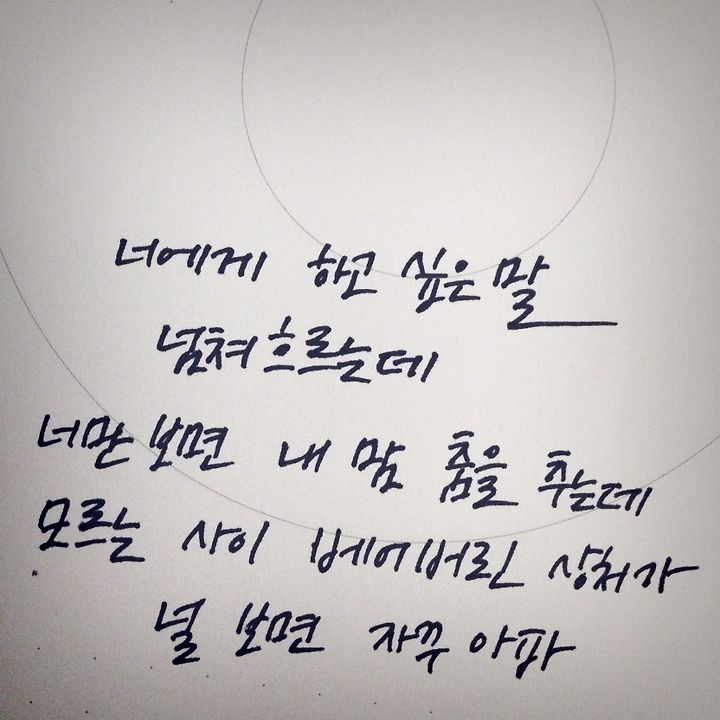 너에게 하고 싶은 말
넘쳐흐르는데
너만 보면 내 맘 춤을 추는데
모르는 사이 베어버린 상처가
널 보면 자꾸 아파